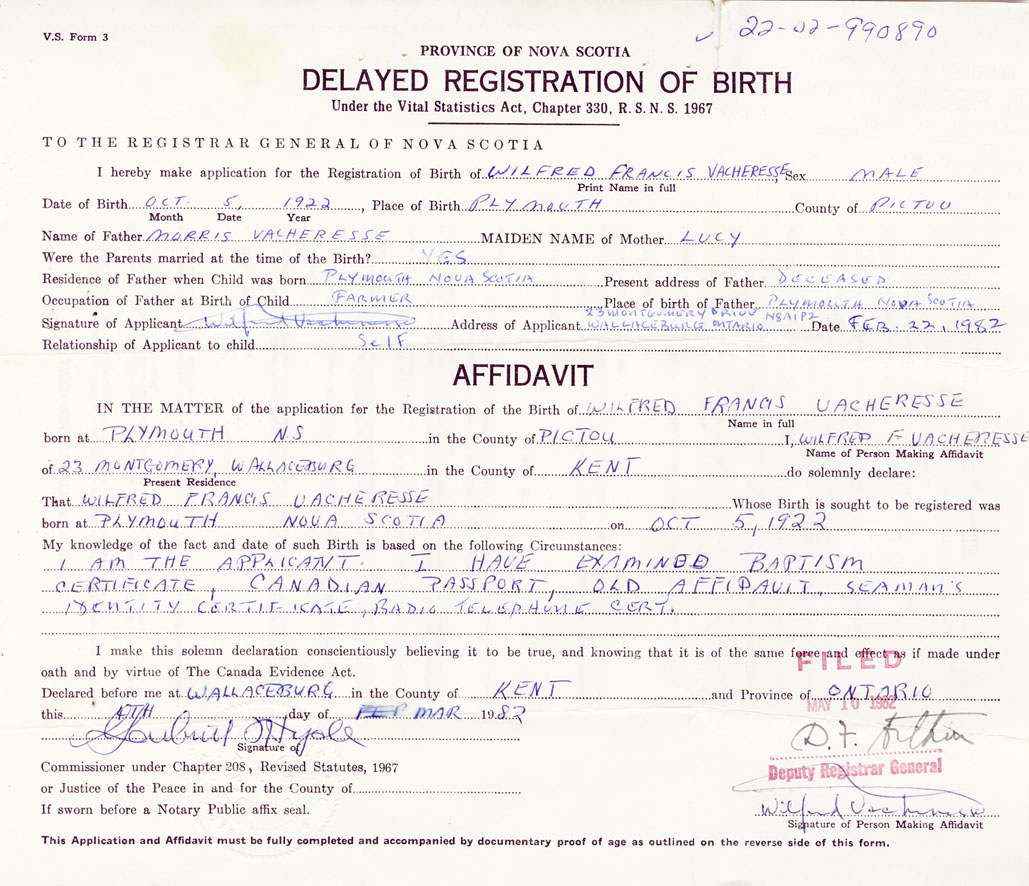 V.S. Form 3
22-02-990890
PROVINCE OF NOVA SCOTIA
DELAYED REGISTRATION OF BIRTH
Under the Vital Statistics Act, Chapter 330, R.S.N.S. 1967
TO THE REGISTRAR GENERAL OF NOVA SCOTIA
I hereby make application for the Registration of Birth of WILFRED FRANCIS VACHERESSE, Sex MALE
Print Name in full
Date of Birth OCT. 5, 1922, Place of Birth PLYMOUTH County of PICTOU
Month Date Year
Name of Father MORRIS VACHERESSE MAIDEN NAME of Mother LUCY
Were the Parents married at the time of the Birth? YES
Residence of Father when Child was born PLYMOUTH NOVA SCOTIA Present address of Father DECEASED
Occupation of Father at Birth of Child FARMER Place of birth of Father PLYMOUTH NOVA SCOTIA
23 MONTGOMERY DRIVE N8A1P2
Signature of Applicant Wilfred Vacheresse Address of Applicant WALLACEBURG ONTARIO Date FEB. 22, 1982
Relationship of Applicant to child Self
AFFIDAVIT
IN THE MATTER of the application for the Registration of the Birth of WILFRED FRANCIS VACHERESSE
Name in full
born at PLYMOUTH NS in the County of PICTOU I, WILFRED F VACHERESSE
Name of Person Making Affidavit
of 23 MONTGOMERY, WALLACEBURG in the County of KENT do solemnly declare:
Present Residence
That WILFRED FRANCIS VACHERESSE Whose Birth is sought to be registered was
born at PLYMOUTH NOVA SCOTIA on OCT 5, 1922
My knowledge of the fact and date of such Birth is based on the following Circumstances:
I AM THE APPLICANT. I HAVE EXAMINED BAPTISM
CERTIFICATE, CANADIAN PASSPORT, OLD AFFIDAVIT, SEAMAN'S
IDENTITY CERTIFICATE, RADIO TELEPHONE CERT.
I make this solemn declaration conscientiously believing it to be true, and knowing that it is of the same force and effect as if made under
FILED
oath and by virtue of The Canada Evidence Act.
Declared before me at WALLACEBURG in the County of KENT and Province of ONTARIO
MAY 10 1982
this day of MAR 1982
Signature of
D. F.
Commissioner under Chapter 208, Revised Statutes, 1967
Deputy Registrar General
or Justice of the Peace in and for the County of
Wilfred Vacheresse
If sworn before a Notary Public affix seal.
Signature of Person Making Affidavit
This Application and Affidavit must be fully completed and accompanied by documentary proof of age as outlined on the reverse side of this form.